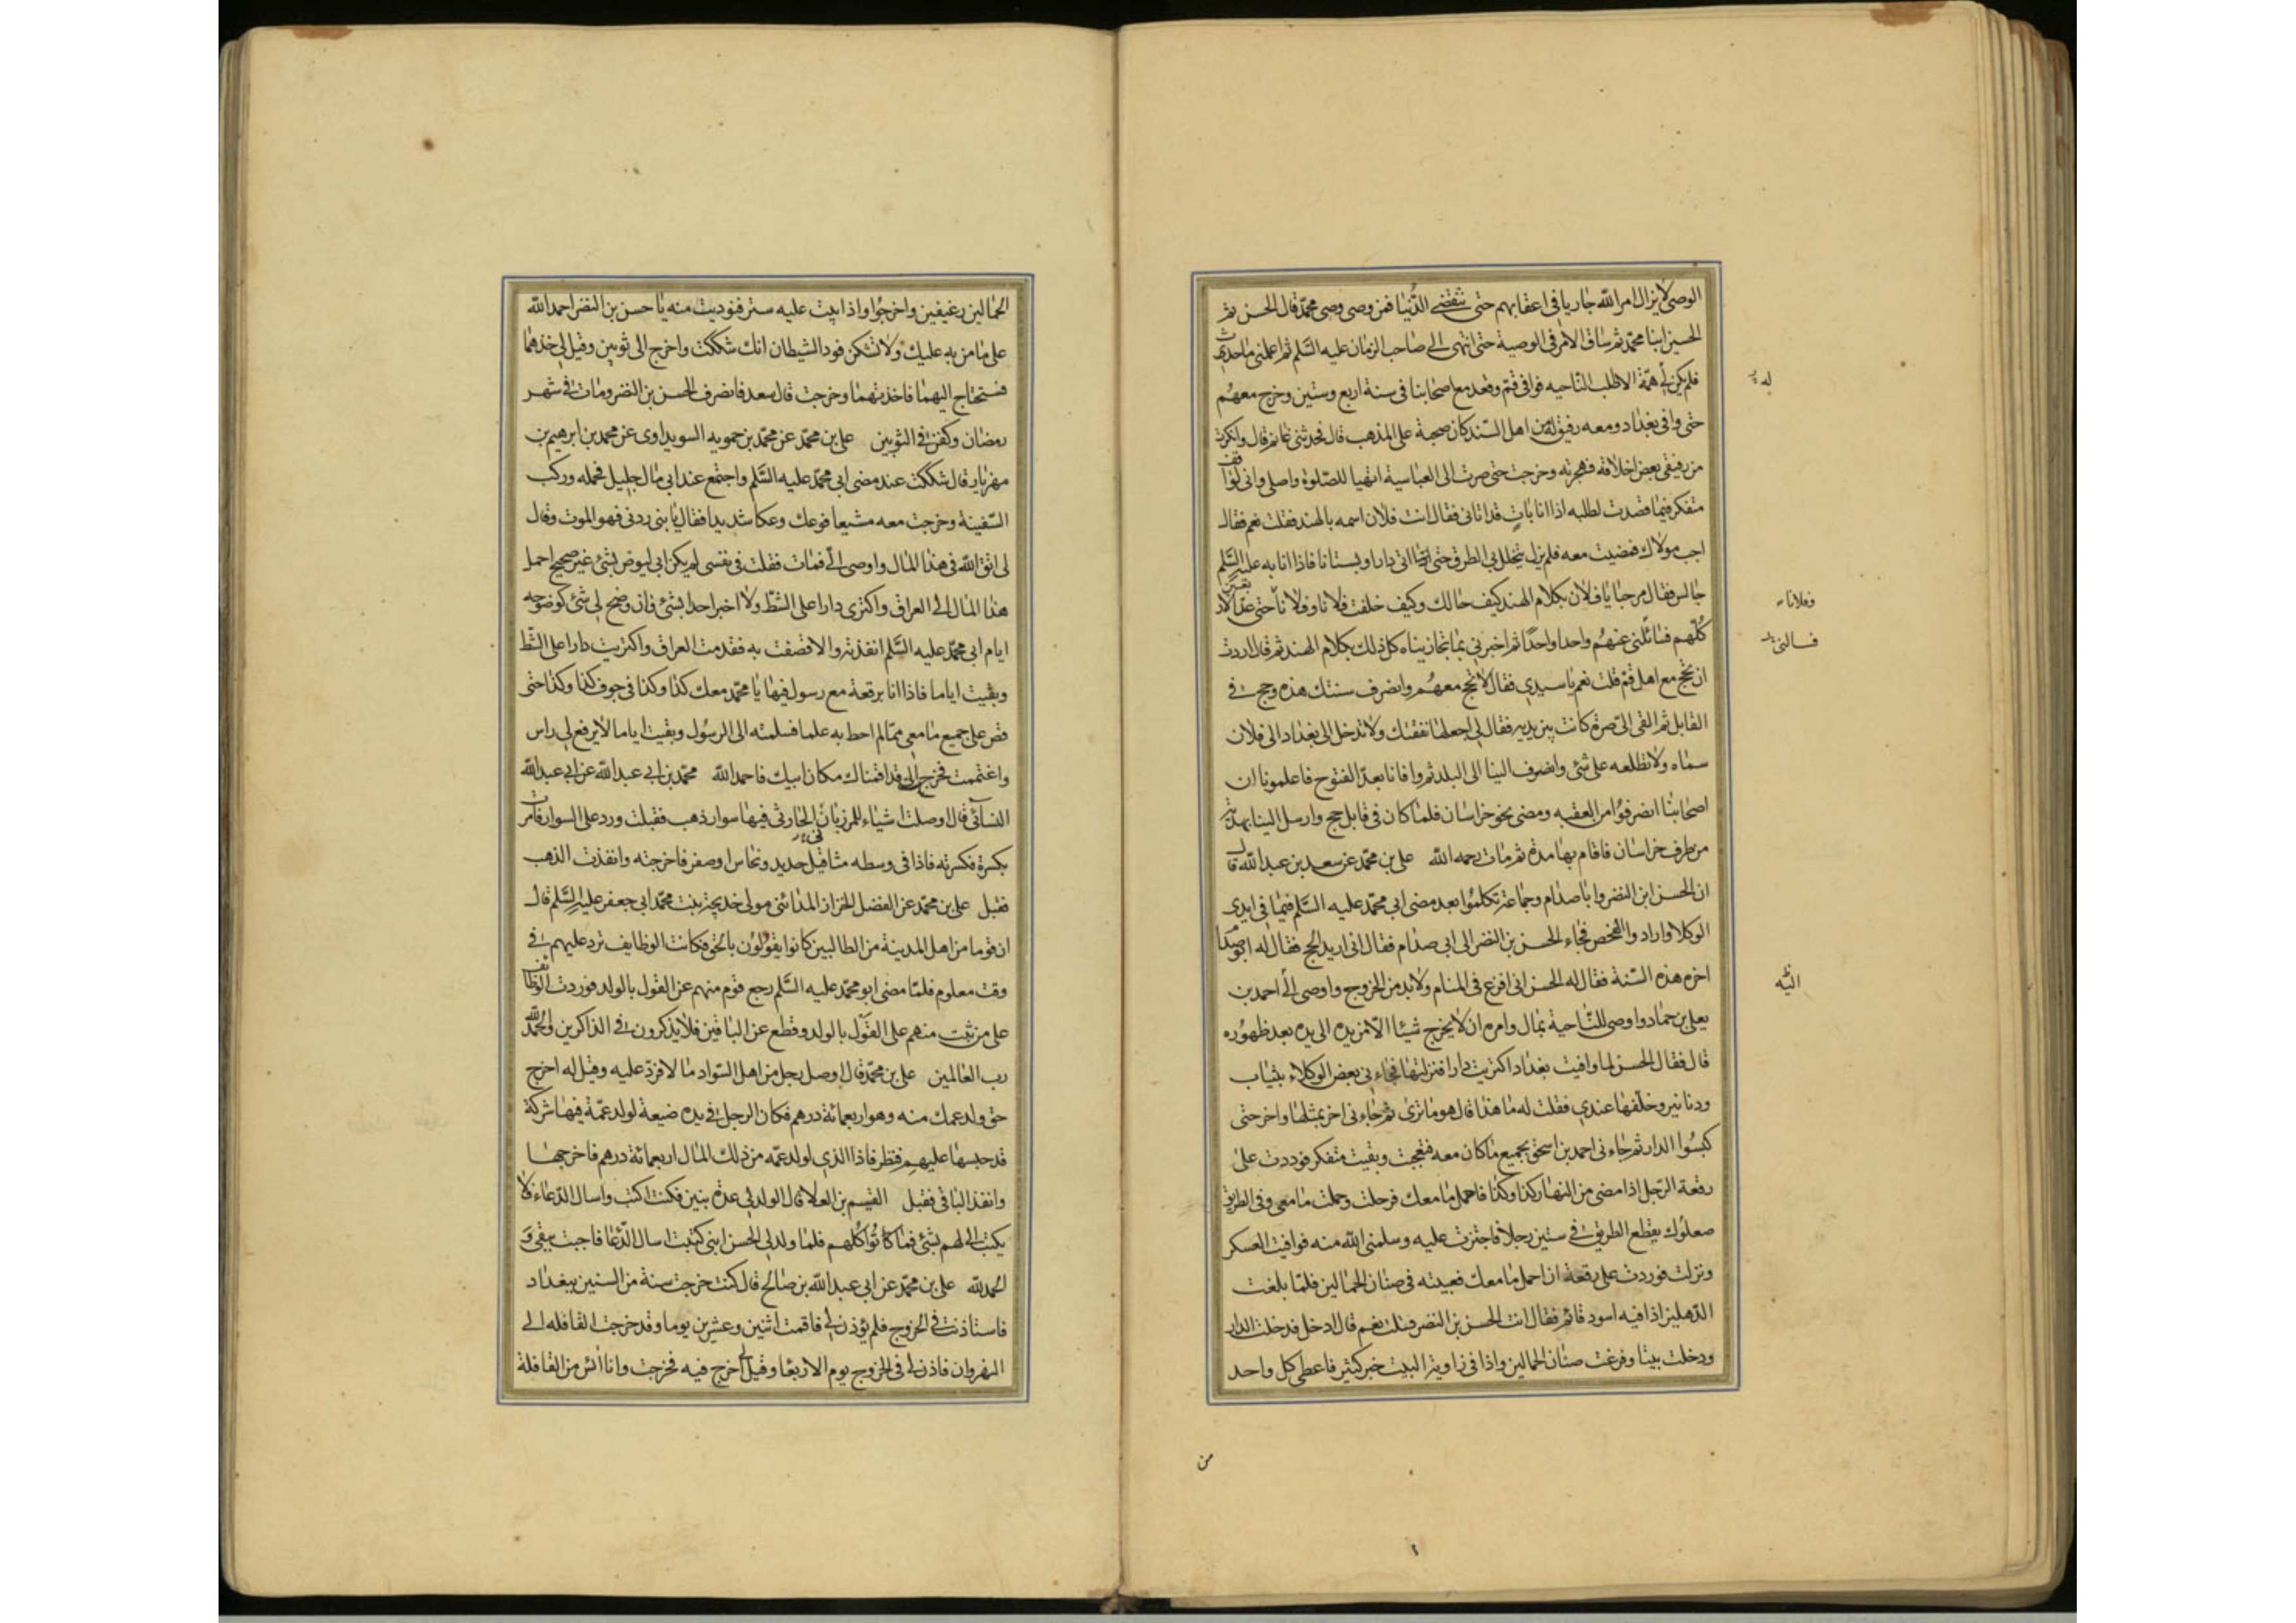 الوصى لا يزال امر الله جاريا فى اعقابهم حتى تنقضى الدنيا فمن وصى وصى محمد قال الحسن ثم
الحسين ابنا محمد ثم ساق الامر فى الوصية حتى انتهى الى صاحب الزمان عليه السلم ثم اعلمنى ما حدث
فلم يكن لى همة الا طلب الناحيه فوافى قم وقعد مع اصحابنا فى سنة اربع وستين وخرج معهم
حتى وافى بغداد ومعه رفيق له من اهل السند كان صحبه على المذهب قال فحدثنى غانم قال وانكرت
من رفيقى بعض اخلاقه فهجرته وخرجت حتى صرت الى العباسية اتهيا للصلوة واصلى وانى لواقف
متفكر فيما قصدت لطلبه اذا انا بات قد اتانى فقال انت فلان اسمه بالهند فقلت نعم فقال
اجب مولاك فمضيت معه فلم يزل يتخلل بى الطرق حتى اتى دارا وبستانا فاذا انا به عليه السلم
جالس فقال مرحبا يا فلان بكلام الهند كيف حالك وكيف خلفت فلانا وفلانا حتى عد الاربعين
كلهم فسائلنى عنهم واحدا واحدا ثم اخبرنى بما تجاريناه كل ذلك بكلام الهند ثم قال اردت
ان تحج مع اهل قم قلت نعم يا سيدى فقال لا تحج معهم وانصرف سنتك هذه وحج فى
القابل ثم القى الى صرة كانت بين يديه فقال لى اجعلها نفقتك ولا تدخل الى بغداد الى فلان
سماه ولا تطلعه على شئ وانصرف الينا الى البلد ثم وافانا بعد الفتوح فاعلمونا ان
اصحابنا انصرفوا من العقبه ومضى نحو خراسان فلما كان فى قابل حج وارسل الينا بهدية
من طرف خراسان فاقام بها مدة ثم مات رحمه الله على بن محمد عن سعد بن عبد الله قال
ان الحسن ابن النضر وابا صدام وجماعة تكلموا بعد مضى ابى محمد عليه السلم فيما فى ايدى
الوكلا واراد والفحص فجاء الحسن بن النضر الى ابى صدام فقال انى اريد الحج فقال له ابو صدام
اخره هذه السنة فقال له الحسن انى افزع فى المنام ولا بد من الخروج واوصى الى احمد بن
يعلى بن حماد واوصى للناحية بمال وامره ان لا يخرج شيئا الا من يده الى يده بعد ظهوره
قال فقال الحسن لما وافيت بغداد اكتريت دارا فنزلتها فجاءنى بعض الوكلاء بثياب
ودنانير وخلفها عندى فقلت له ما هذا قال هو ما ترى ثم جاءنى اخر بمثلها واخر حتى
كبسوا الدار ثم جاءنى احمد بن اسحق بجميع ما كان معه فتعجبت وبقيت متفكر فوردت على
رقعة الرجل اذا مضى من النهار كذا وكذا فاحمل ما معك فرحلت وحملت ما معى وفى الطريق
صعلوك يقطع الطريق فى ستين رجلا فاجتزت عليه وسلمنى الله منه فوافيت العسكر
ونزلت فوردت على رقعة ان احمل ما معك فعبيته فى صنان الحمالين فلما بلغت
الدهليز اذا فيه اسود قائم فقال انت الحسن بن النضر فقلت نعم قال ادخل فدخلت الدار
ودخلت بيتا وفرغت صنان الحمالين واذا فى زاوية البيت خبز كثير فاعطى كل واحد
من
وفلاناء
اليه
الحمالين رغيفين واخرجوا واذا بيت عليه ستر فنوديت منه يا حسن بن النضر احمد الله
على ما من به عليك ولا تشكن فود الشيطان انك شككت واخرج الى ثوبين وقيل لى خذهما
فستحتاج اليهما فاخذتهما وخرجت قال سعد فانصرف الحسن بن النضر ومات فى شهر
رمضان وكفن فى الثوبين على بن محمد عن محمد بن حمويه السويداوى عن محمد بن ابرهيم بن
مهزيار قال شككت عند مضى ابى محمد عليه السلم واجتمع عند ابى مال جليل فحمله وركب
السفينة وخرجت معه مشيعا فوعك وعكا شديدا فقال يا بنى ردنى فهو الموت وقال
لى اتق الله فى هذا المال واوصى الى فمات فقلت فى نفسى لم يكن ابى ليوصى بشئ غير صحيح احمل
هذا المال الى العراق واكترى دارا على الشط ولا اخبر احدا بشئ فان وضح لى شئ كوضوحه
ايام ابى محمد عليه السلم انفذته والا قصفت به فقدمت العراق واكتريت دارا على الشط
وبقيت اياما فاذا انا برقعة مع رسول فيها يا محمد معك كذا وكذا فى جوف كذا وكذا حتى
قص على جميع ما معى مما لم احط به علما فسلمته الى الرسول وبقيت اياما لا يرفع لى راس
واغتممت فخرج الى قد اقمناك مكان ابيك فاحمد الله محمد بن ابى عبد الله عن ابى عبد الله
النسائى قال اوصلت اشياء للمرزبان الحارثى فيها سوار ذهب فقبلت ورد على السوار فامرت
بكسره فكسرته فاذا فى وسطه مثاقيل حديد ونحاس او صفر فاخرجته وانفذت الذهب
فقبل على بن محمد عن الفضل الخزاز المدائنى مولى خديجة بنت محمد ابى جعفر عليه السلم قال
ان قوما من اهل المدينة من الطالبيين كانوا يقولون بالحق فكانت الوظايف ترد عليهم فى
وقت معلوم فلما مضى ابو محمد عليه السلم رجع قوم منهم عن القول بالولد فوردت الوظائف
على من ثبت منهم على القول بالولد وقطع عن الباقين فلا يذكرون فى الذاكرين والحمد لله
رب العالمين على بن محمد قال اوصل رجل من اهل السواد مالا فرد عليه وقيل له اخرج
حق ولد عمك منه وهو اربعمائة درهم فكان الرجل فى يده ضيعة لولد عمه فيها شركة
قد حبسها عليهم فنظر فاذا الذى لولد عمه من ذلك المال اربعمائة درهم فاخرجها
وانفذ الباقى فقبل القسم بن العلا قال ولد لى عدة بنين فكنت اكتب واسال الدعاء فلا
يكتب الى لهم بشئ فماتوا كلهم فلما ولد لى الحسن ابنى كتبت اسال الدعا فاجبت يبقى و
الحمد لله على بن محمد عن ابى عبد الله بن صالح قال كنت خرجت سنة من السنين ببغداد
فاستاذنت فى الخروج فلم يؤذن لى فاقمت اثنين وعشرين يوما وقد خرجت القافله الى
النهروان فاذن لى فى الخروج يوم الاربعا وقيل لى اخرج فيه فخرجت وانا آئس من القافلة